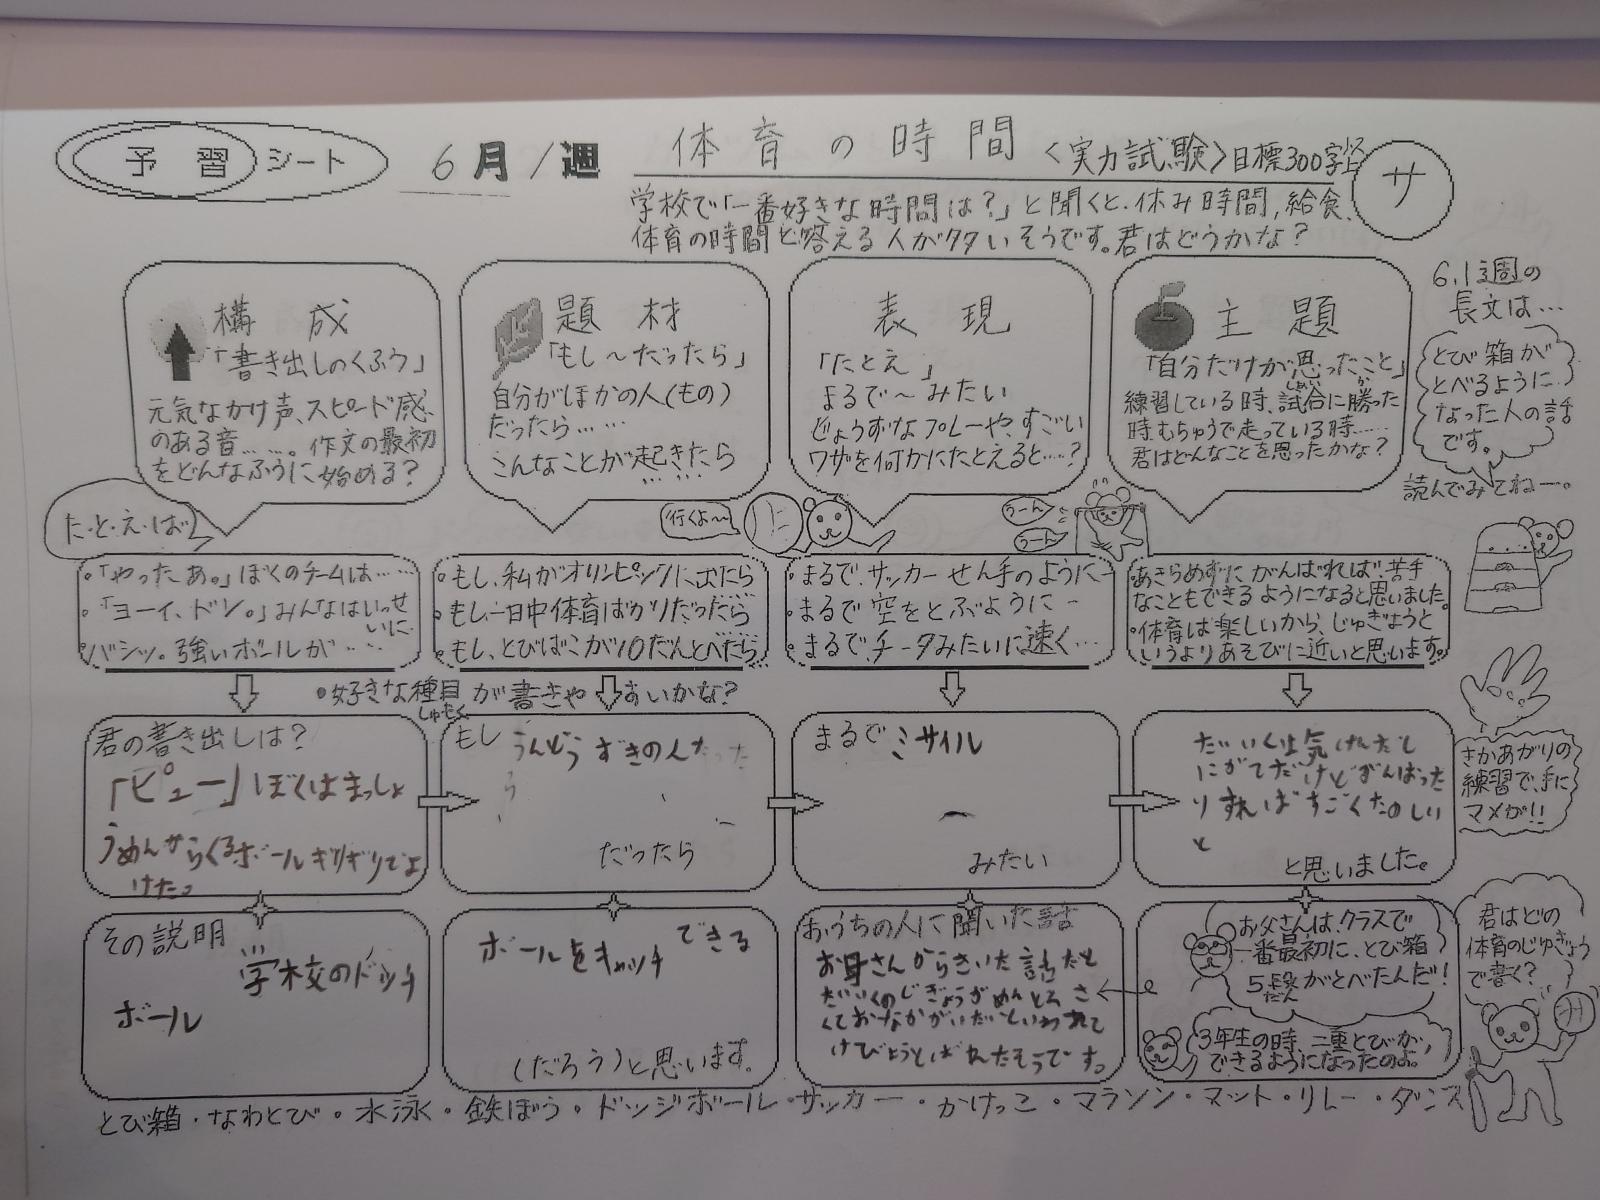 予習シート
6月1週
体育の時間
〈実力試験〉目標300字以上
サ
学校で「一番好きな時間は？」と聞くと、休み時間、給食、
体育の時間と答える人が多いそうです。君はどうかな？
構成
「書き出しのくふう」
元気なかけ声、スピード感
のある音……。作文の最初
をどんなふうに始める？
題材
「もし～だったら」
自分がほかの人（もの）
だったら……
こんなことが起きたら
……
表現
「たとえ」
まるで～みたい
じょうずなプレーや、すごい
ワザを何かにたとえると……？
主題
「自分だけが思ったこと」
練習している時、試合に勝った
しあい
か
時、むちゅうで走っている時……
君はどんなことを思ったかな？
6.1週の
長文は…
とび箱が
とべるように
なった人の話
です。
読んでみてねー。
た・と・え・ば
行くよ～
うーん
うーん
・「やったあ。」ぼくのチームは……
・「ヨーイ、ドン。」みんなはいっせ
いに…
・バシッ。強いボールが……
・もし、私がオリンピックに出たら
・もし一日中体育ばかりだったら
・もし、とびばこが10だんとべたら
・まるで、サッカーせん手のように
・まるで空をとぶように
・まるで、チータみたいに速く…
・あきらめずにがんばれば、苦手
なこともできるようになると思いました。
・体育は楽しいから、じゅぎょうと
いうよりあそびに近いと思います。
・好きな種目が書きやすいかな？
しゅもく
君の書き出しは？
「ピュー」ぼくはまっしょ
うめんからくるボールギリギリでよ
けたっ
もし
うんどうずきの人だった
ら
だったら
まるでミサイル
みたい
だいくは気けんだし
にがてだけどがんばった
りすればすごくたのしい
と
と思いました。
さかあがりの
練習で、手に
マメが!!
その説明
学校のドッチ
ボール
ボールをキャッチできる
（だろう）と思います。
おうちの人に聞いた話
お母さんからきいた話だと
だいくのじぎょうがめんどうさ
くておなかがいたいといわれて
けびょうとばれたそうです。
お父さんは、クラスで
一番最初に、とび箱
5段がとべたんだ！
だん
3年生の時、二重とびが、
できるようになったのよ。
君はどの
体育のじゅぎょう
で書く？
とび箱・なわとび・水泳・鉄ぼう・ドッジボール・サッカー・かけっこ・マラソン・マット・リレー・ダンス